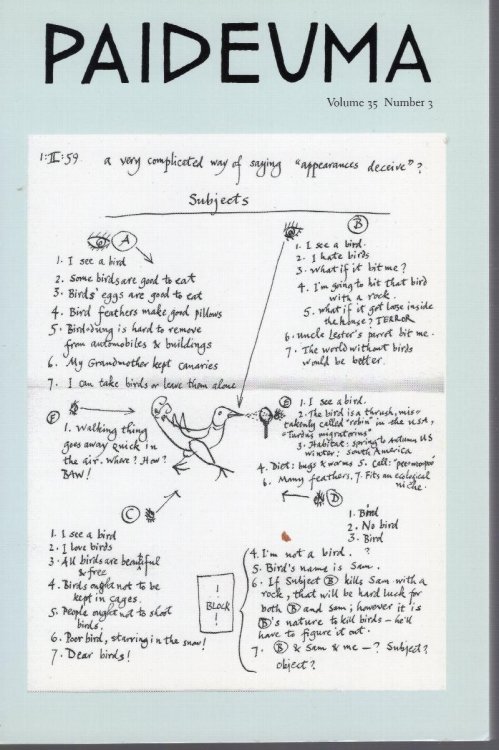 PAIDEUMA
Volume 35 Number 3
1:II:59. a very complicated way of saying "appearances deceive"?
Subjects
A
1. I see a bird
2. Some birds are good to eat
3. Birds' eggs are good to eat
4. Bird feathers make good pillows
5. Bird-dung is hard to remove
from automobiles & buildings
6. My Grandmother kept canaries
7. I can take birds or leave them alone
B
1. I see a bird.
2. I hate birds
3. What if it bit me?
4. I'm going to hit that bird
with a rock.
5. what if it got loose inside
the house? TERROR
6. uncle Lester's parrot bit me.
7. The world without birds
would be better.
F
1. Walking thing
goes away quick in
the air. Where? How?
BAW!
E
1. I see a bird.
2. The bird is a thrush, mis-
takenly called "robin" in the USA,
"Turdus migratorius"
3. Habitat: spring to autumn US
winter: south America
4. Diet: bugs & worms 5. Call:
6. Many feathers. 7. Fits an ecological
niche.
C
1. I see a bird
2. I love birds
3. All birds are beautiful
& free
4. Birds ought not to be
kept in cages.
5. People ought not to shoot
birds.
6. Poor bird, starving in the snow!
7. Dear birds!
D
1. Bird
2. No bird
3. Bird
BLOCK
4. I'm not a bird. ?
5. Bird's name is Sam.
6. If Subject B kills Sam with a
rock, that will be hard luck for
both B and Sam; however it is
B's nature to kill birds – he'll
have to figure it out.
7. B & Sam & me – ? Subject?
object?